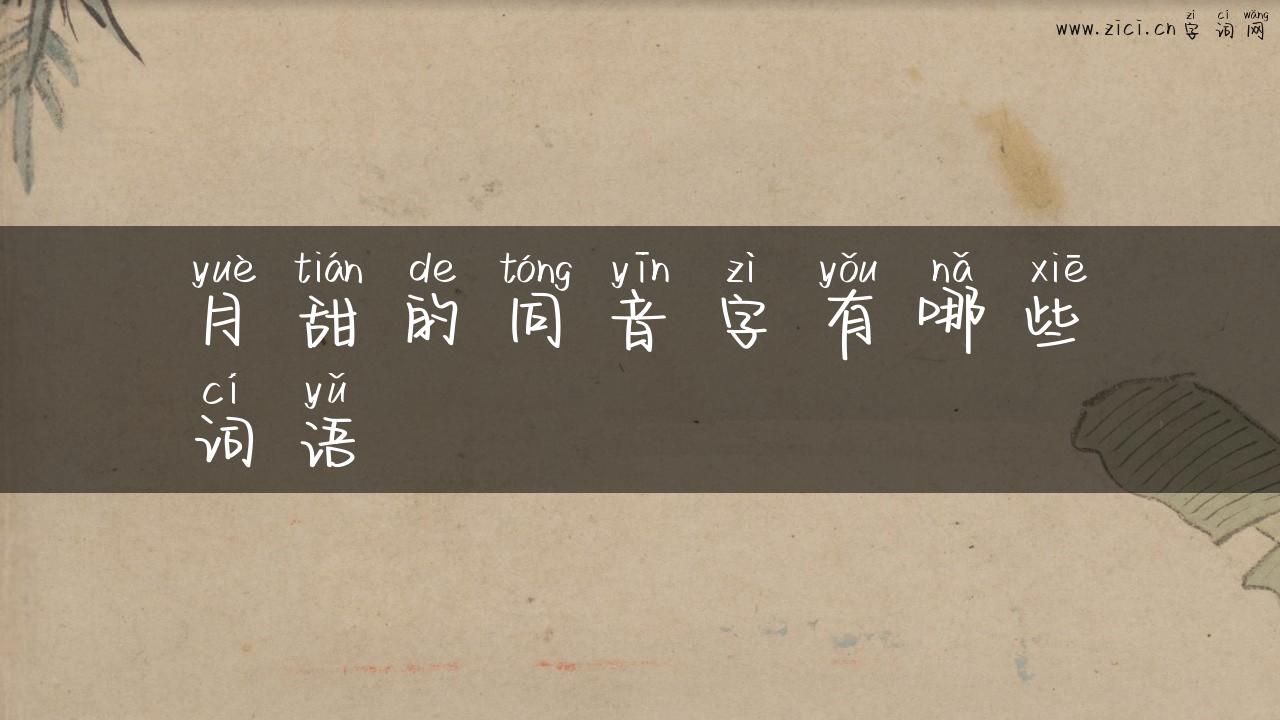 zì cí wǎng
www.zici.cn 字词网
yuè tián de tóng yīn zì yǒu nǎ xiē
月甜的同音字有哪些
cí yǔ
词语